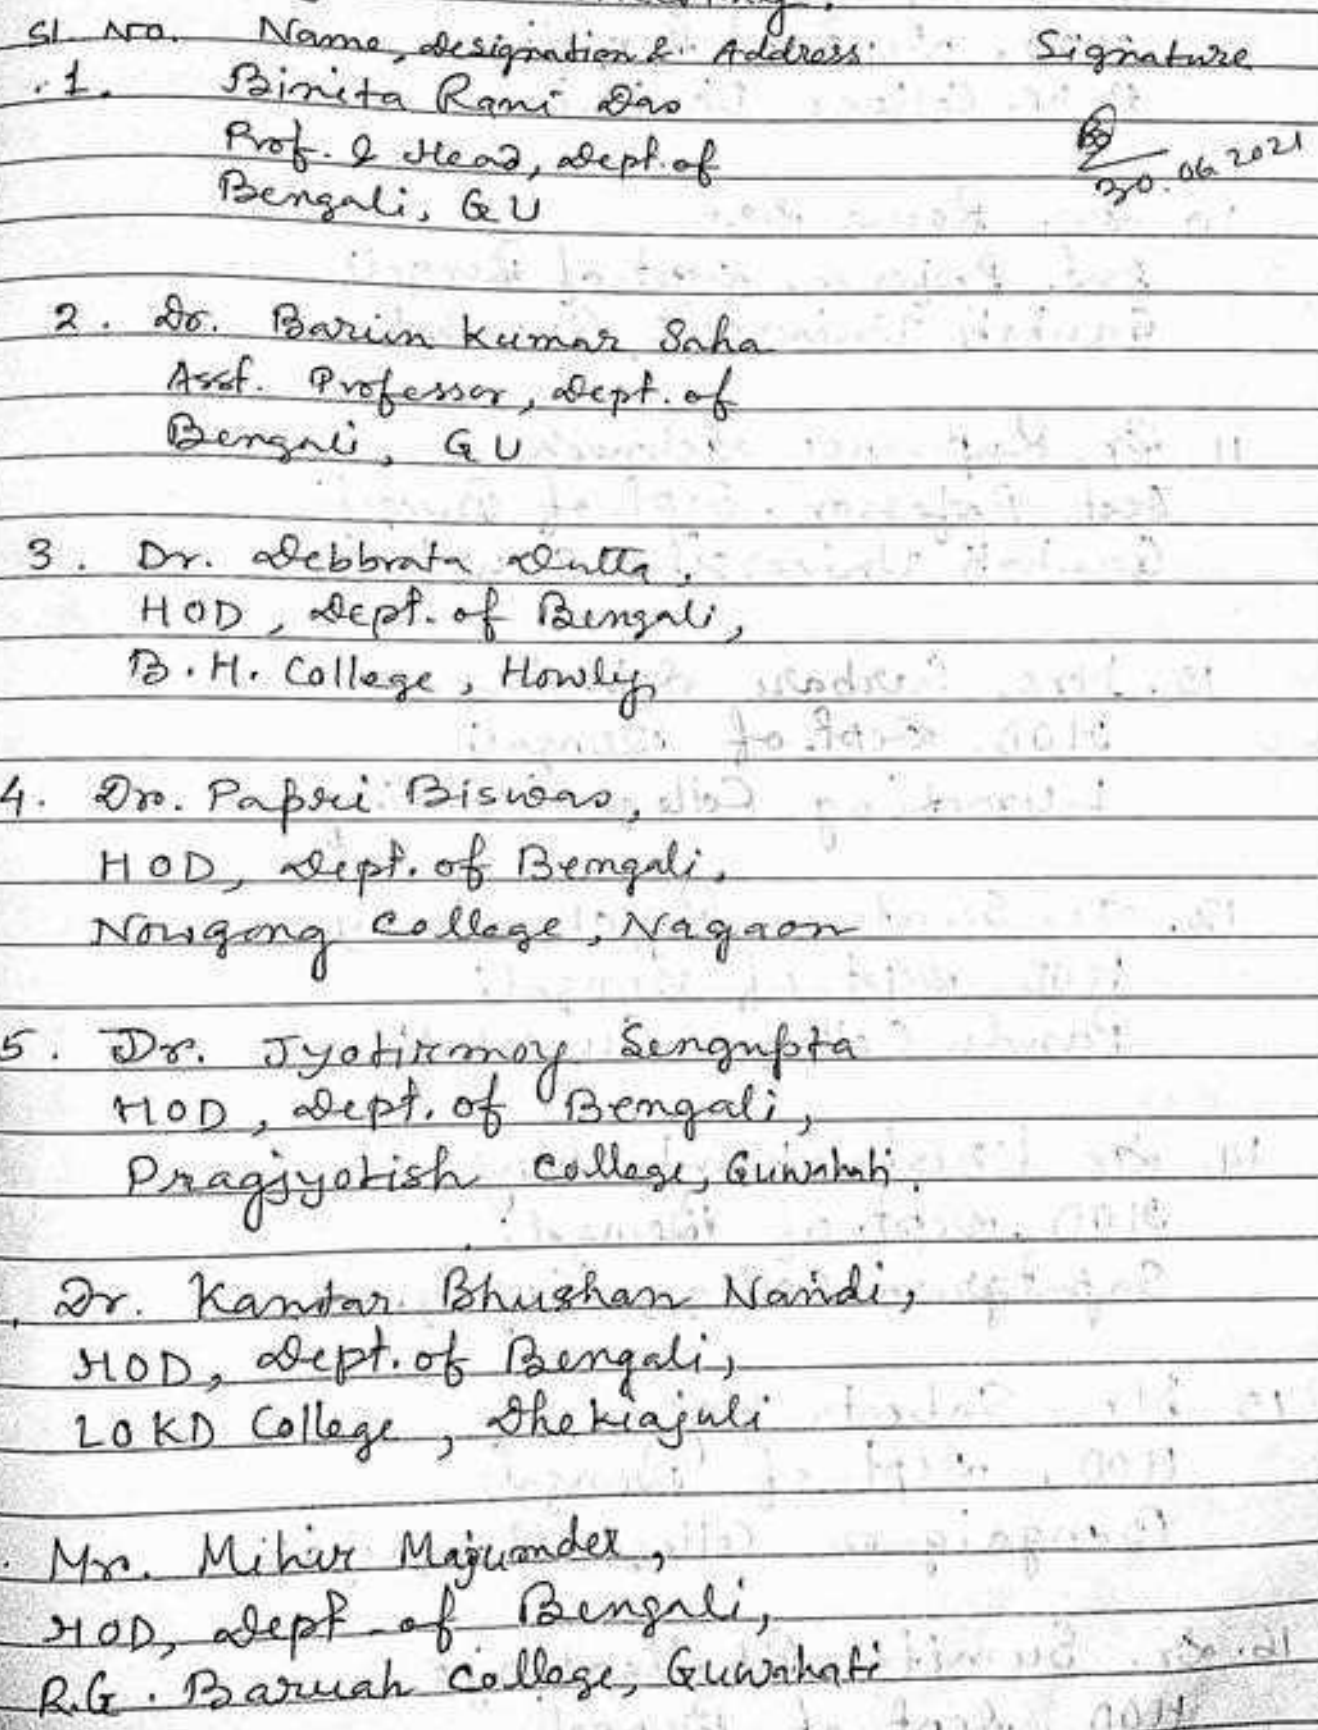 Sl. No. Name, Designation & Address Signature
1. Binita Rani Das
Prof. & Head, Dept. of
Bengali, GU
30.06.2021
2. Dr. Barun Kumar Saha
Asst. Professor, Dept. of
Bengali, GU
3. Dr. Debbrata Dutta,
HOD, Dept. of Bengali,
B.H. College, Howly
4. Dr. Papri Biswas,
HOD, Dept. of Bengali,
Nowgong College, Nagaon
5. Dr. Jyotirmoy Sengupta
HOD, Dept. of Bengali,
Pragjyotish College, Guwahati.
Dr. Kantar Bhushan Nandi,
HOD, Dept. of Bengali,
LOKD College, Dhekiajuli
Mr. Mihir Majumder,
HOD, Dept of Bengali,
R.G. Baruah College, Guwahati